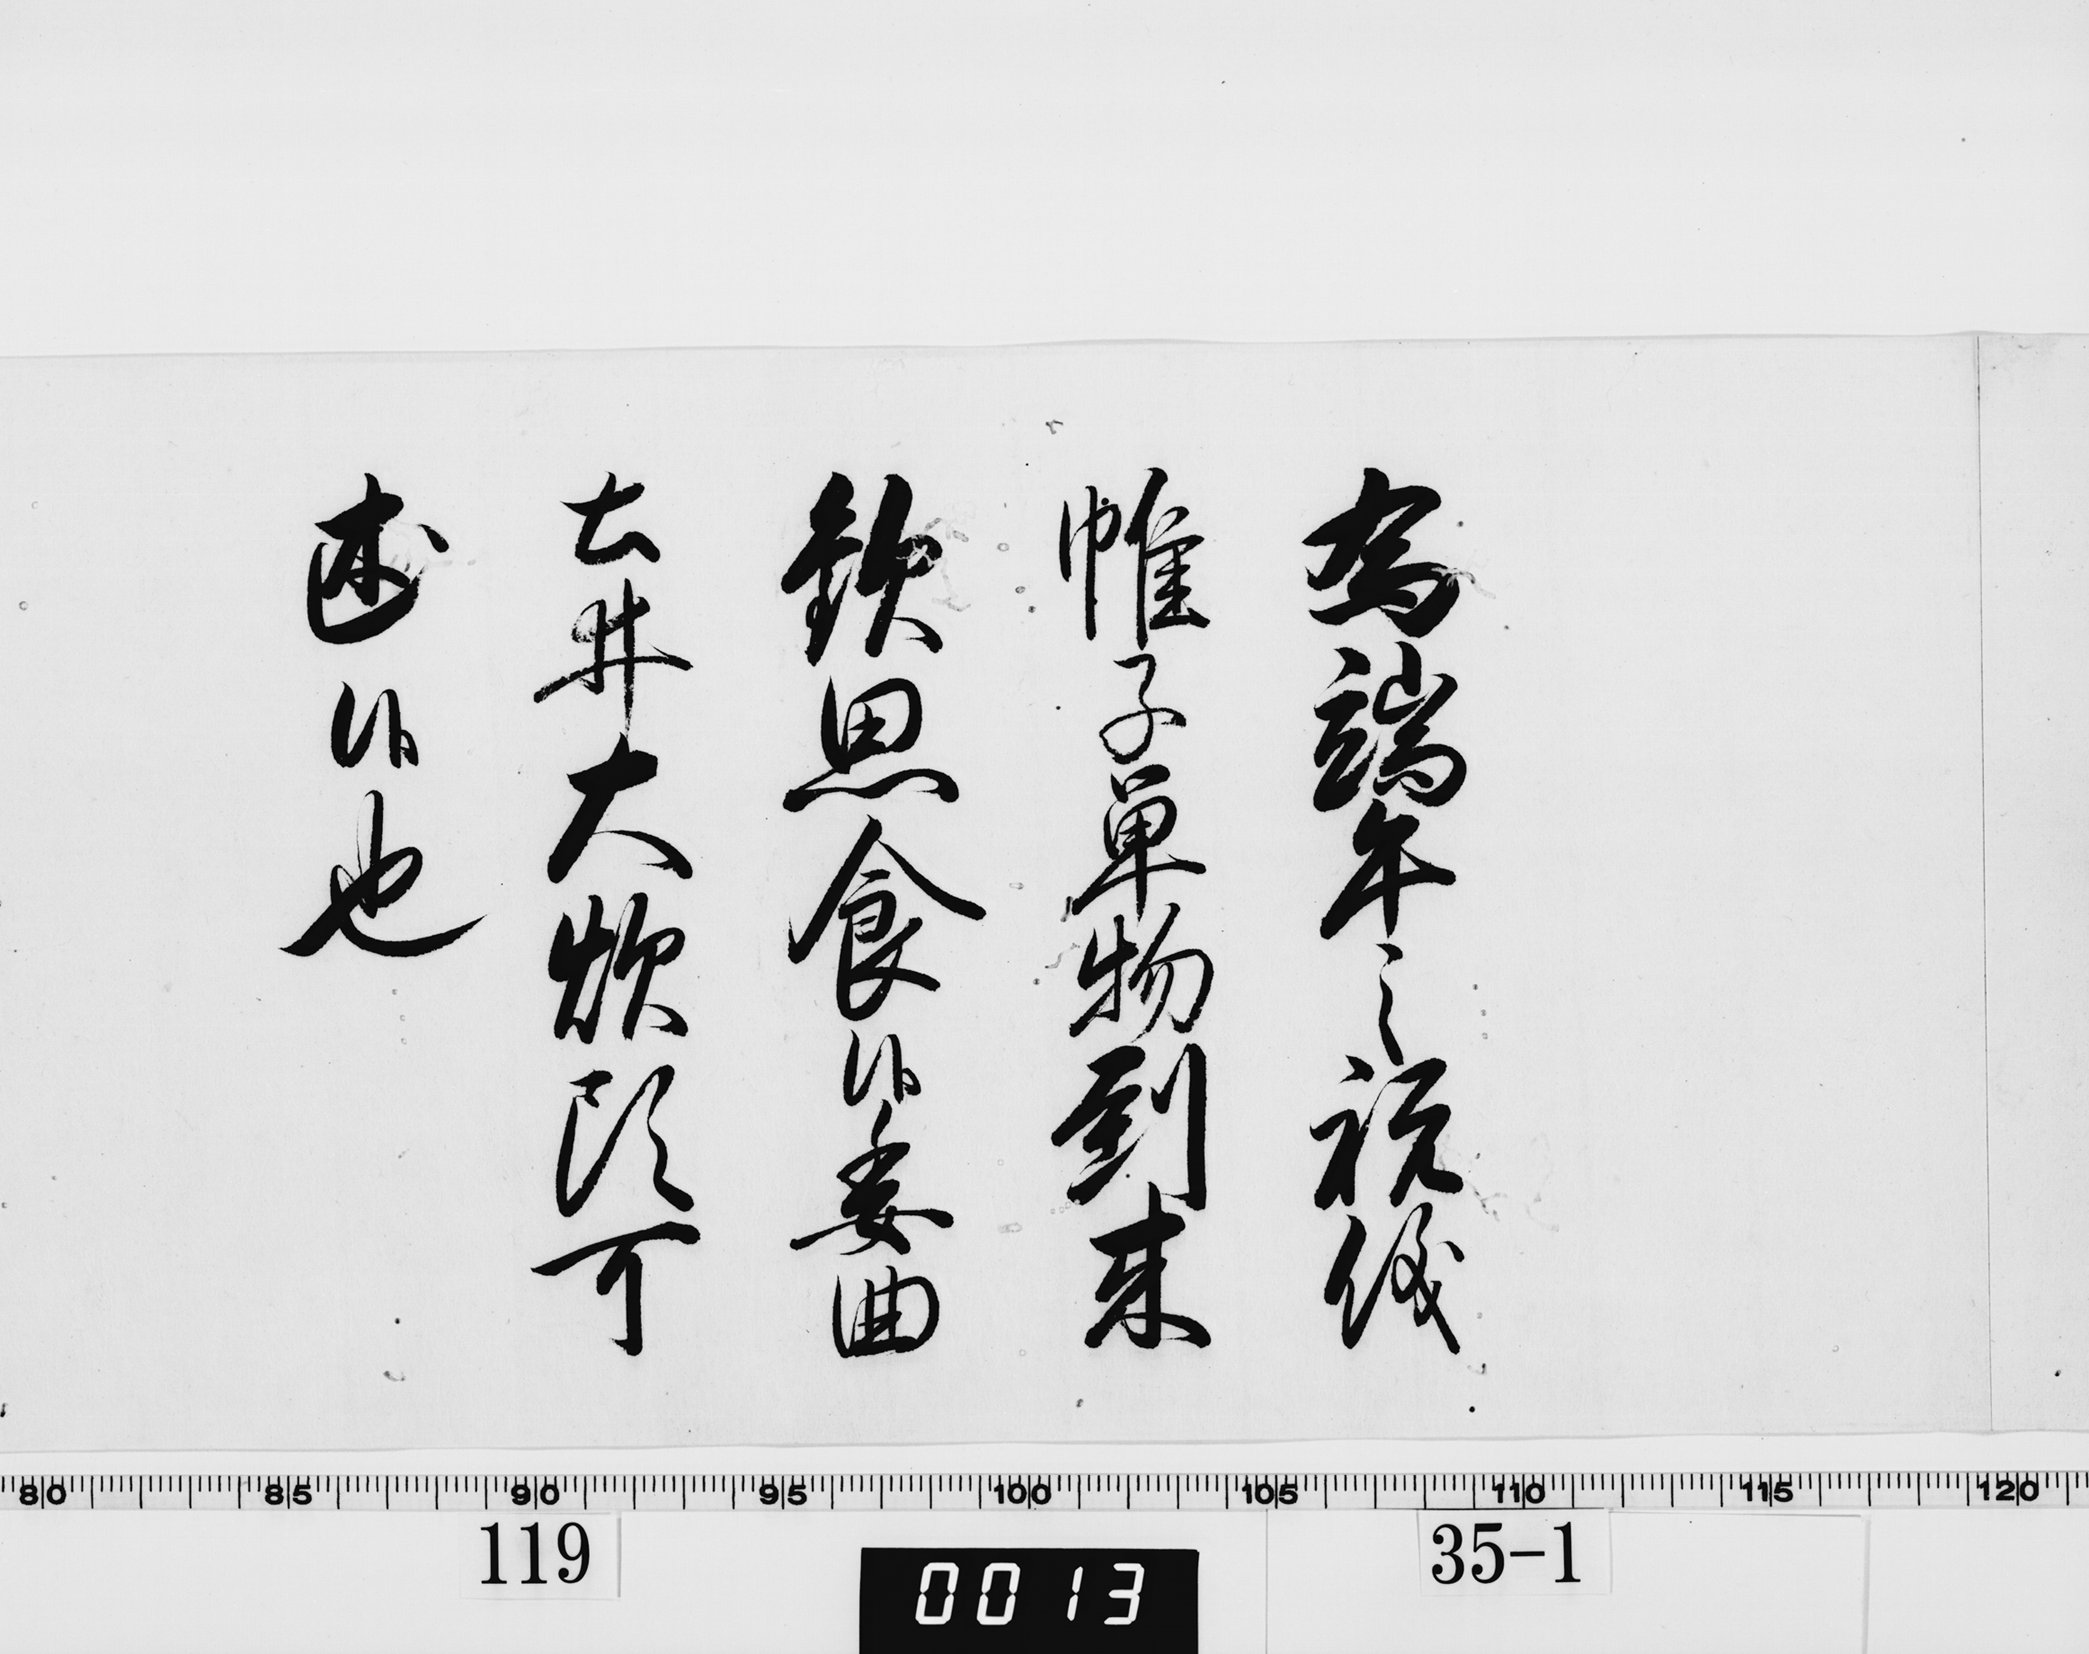 為端午之祝儀
帷子単物到来
欽思食候委曲
土井大炊頭可
述候也
80 85 90 95 100 105 110 115 120
119
35-1
0013